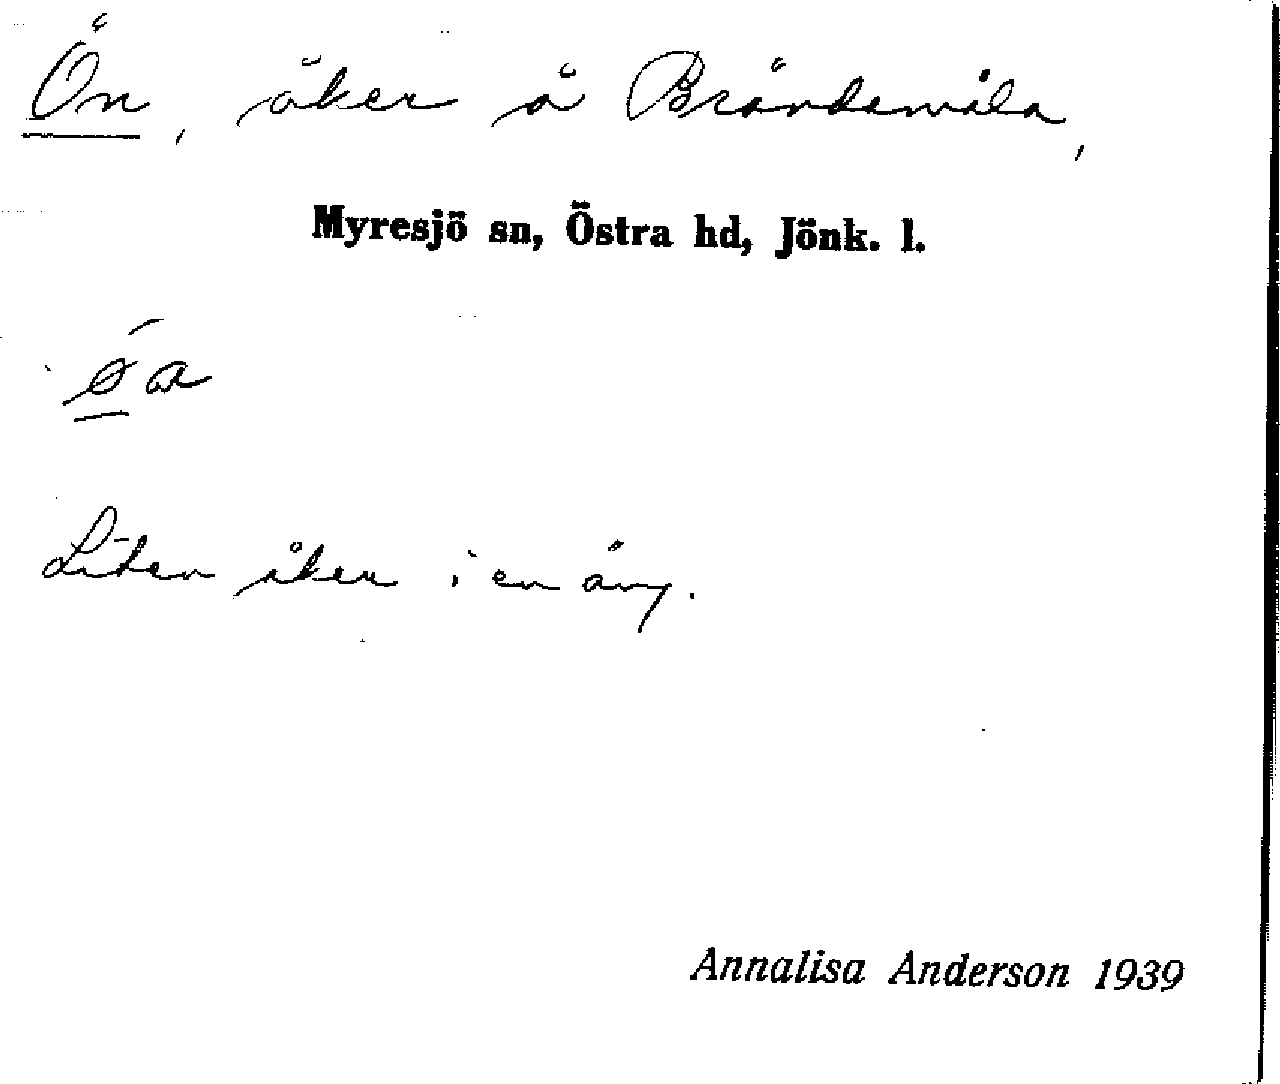 Ön, åker å Brändemåla,
Myresjö sn, Östra hd, Jönk. l.
ǿa
Liten åker i en äng.
Annalisa Anderson 1939